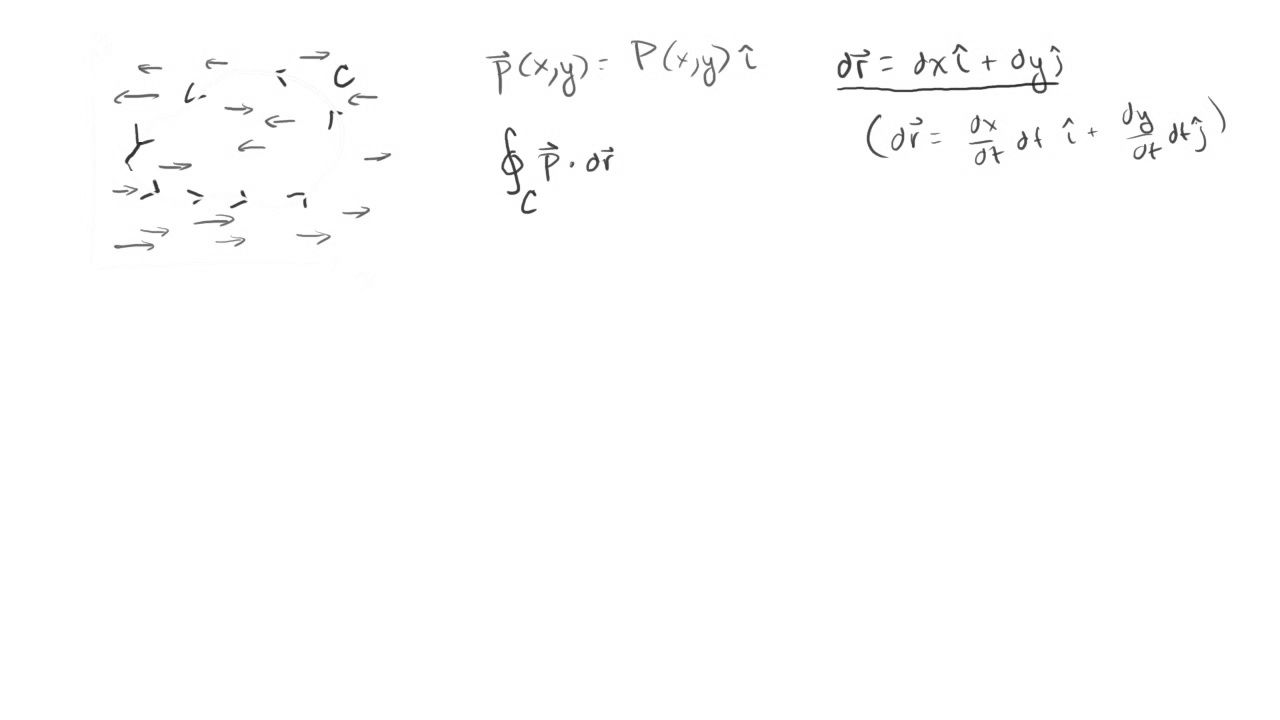 C
p⃗(x,y) = P(x,y) î
∮_C p⃗ · dr⃗
dr⃗ = dx î + dy ĵ
(dr⃗ = dx/dt dt î + dy/dt dt ĵ)